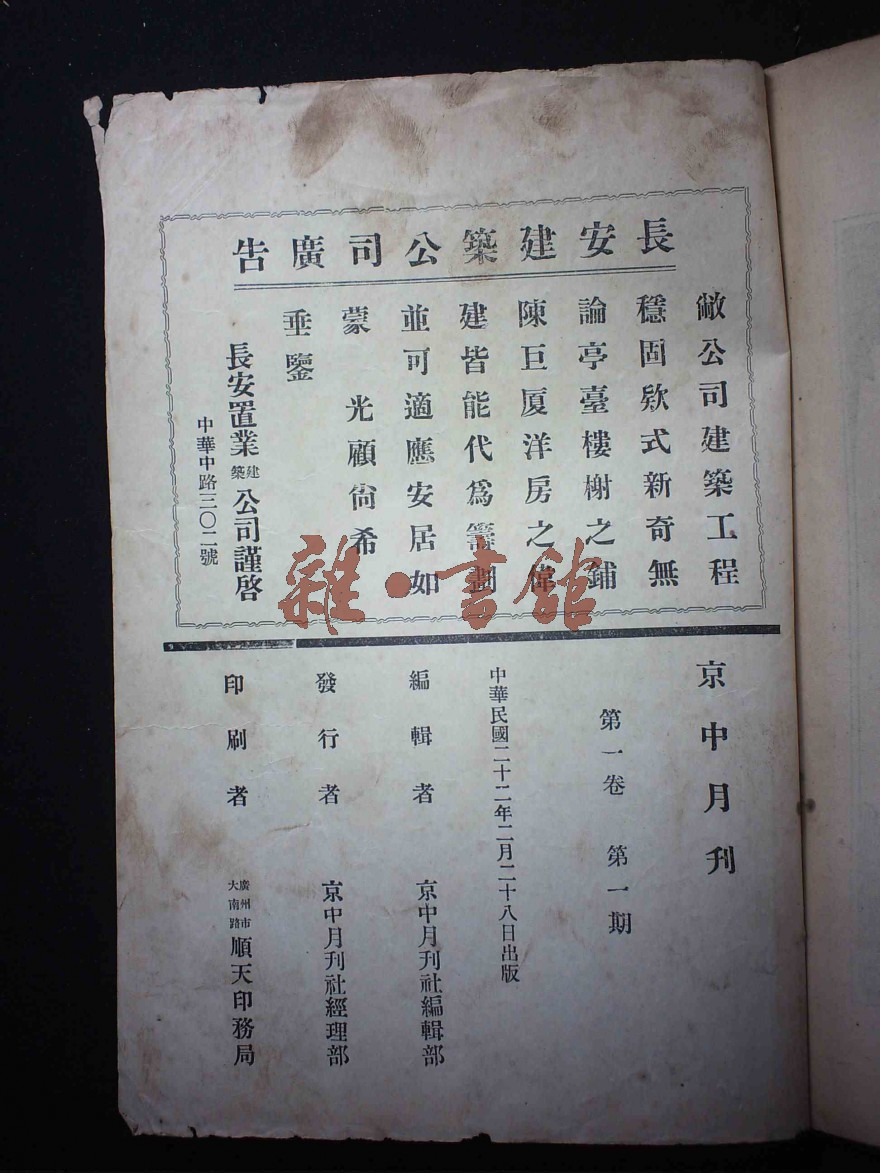 長安建築公司廣告
敝公司建築工程
穩固欵式新奇無
論亭臺樓榭之鋪
陳巨厦洋房之偉
建皆能代爲籌劃
並可適應安居如
蒙　光顧尙希
垂鑒
長安置業建築公司謹啓
中華中路三〇二號
京中月刊
第一卷　第一期
中華民國二十二年二月二十八日出版
編輯者　京中月刊社編輯部
發行者　京中月刊社經理部
印刷者　廣州市大南路順天印務局
雜·書館